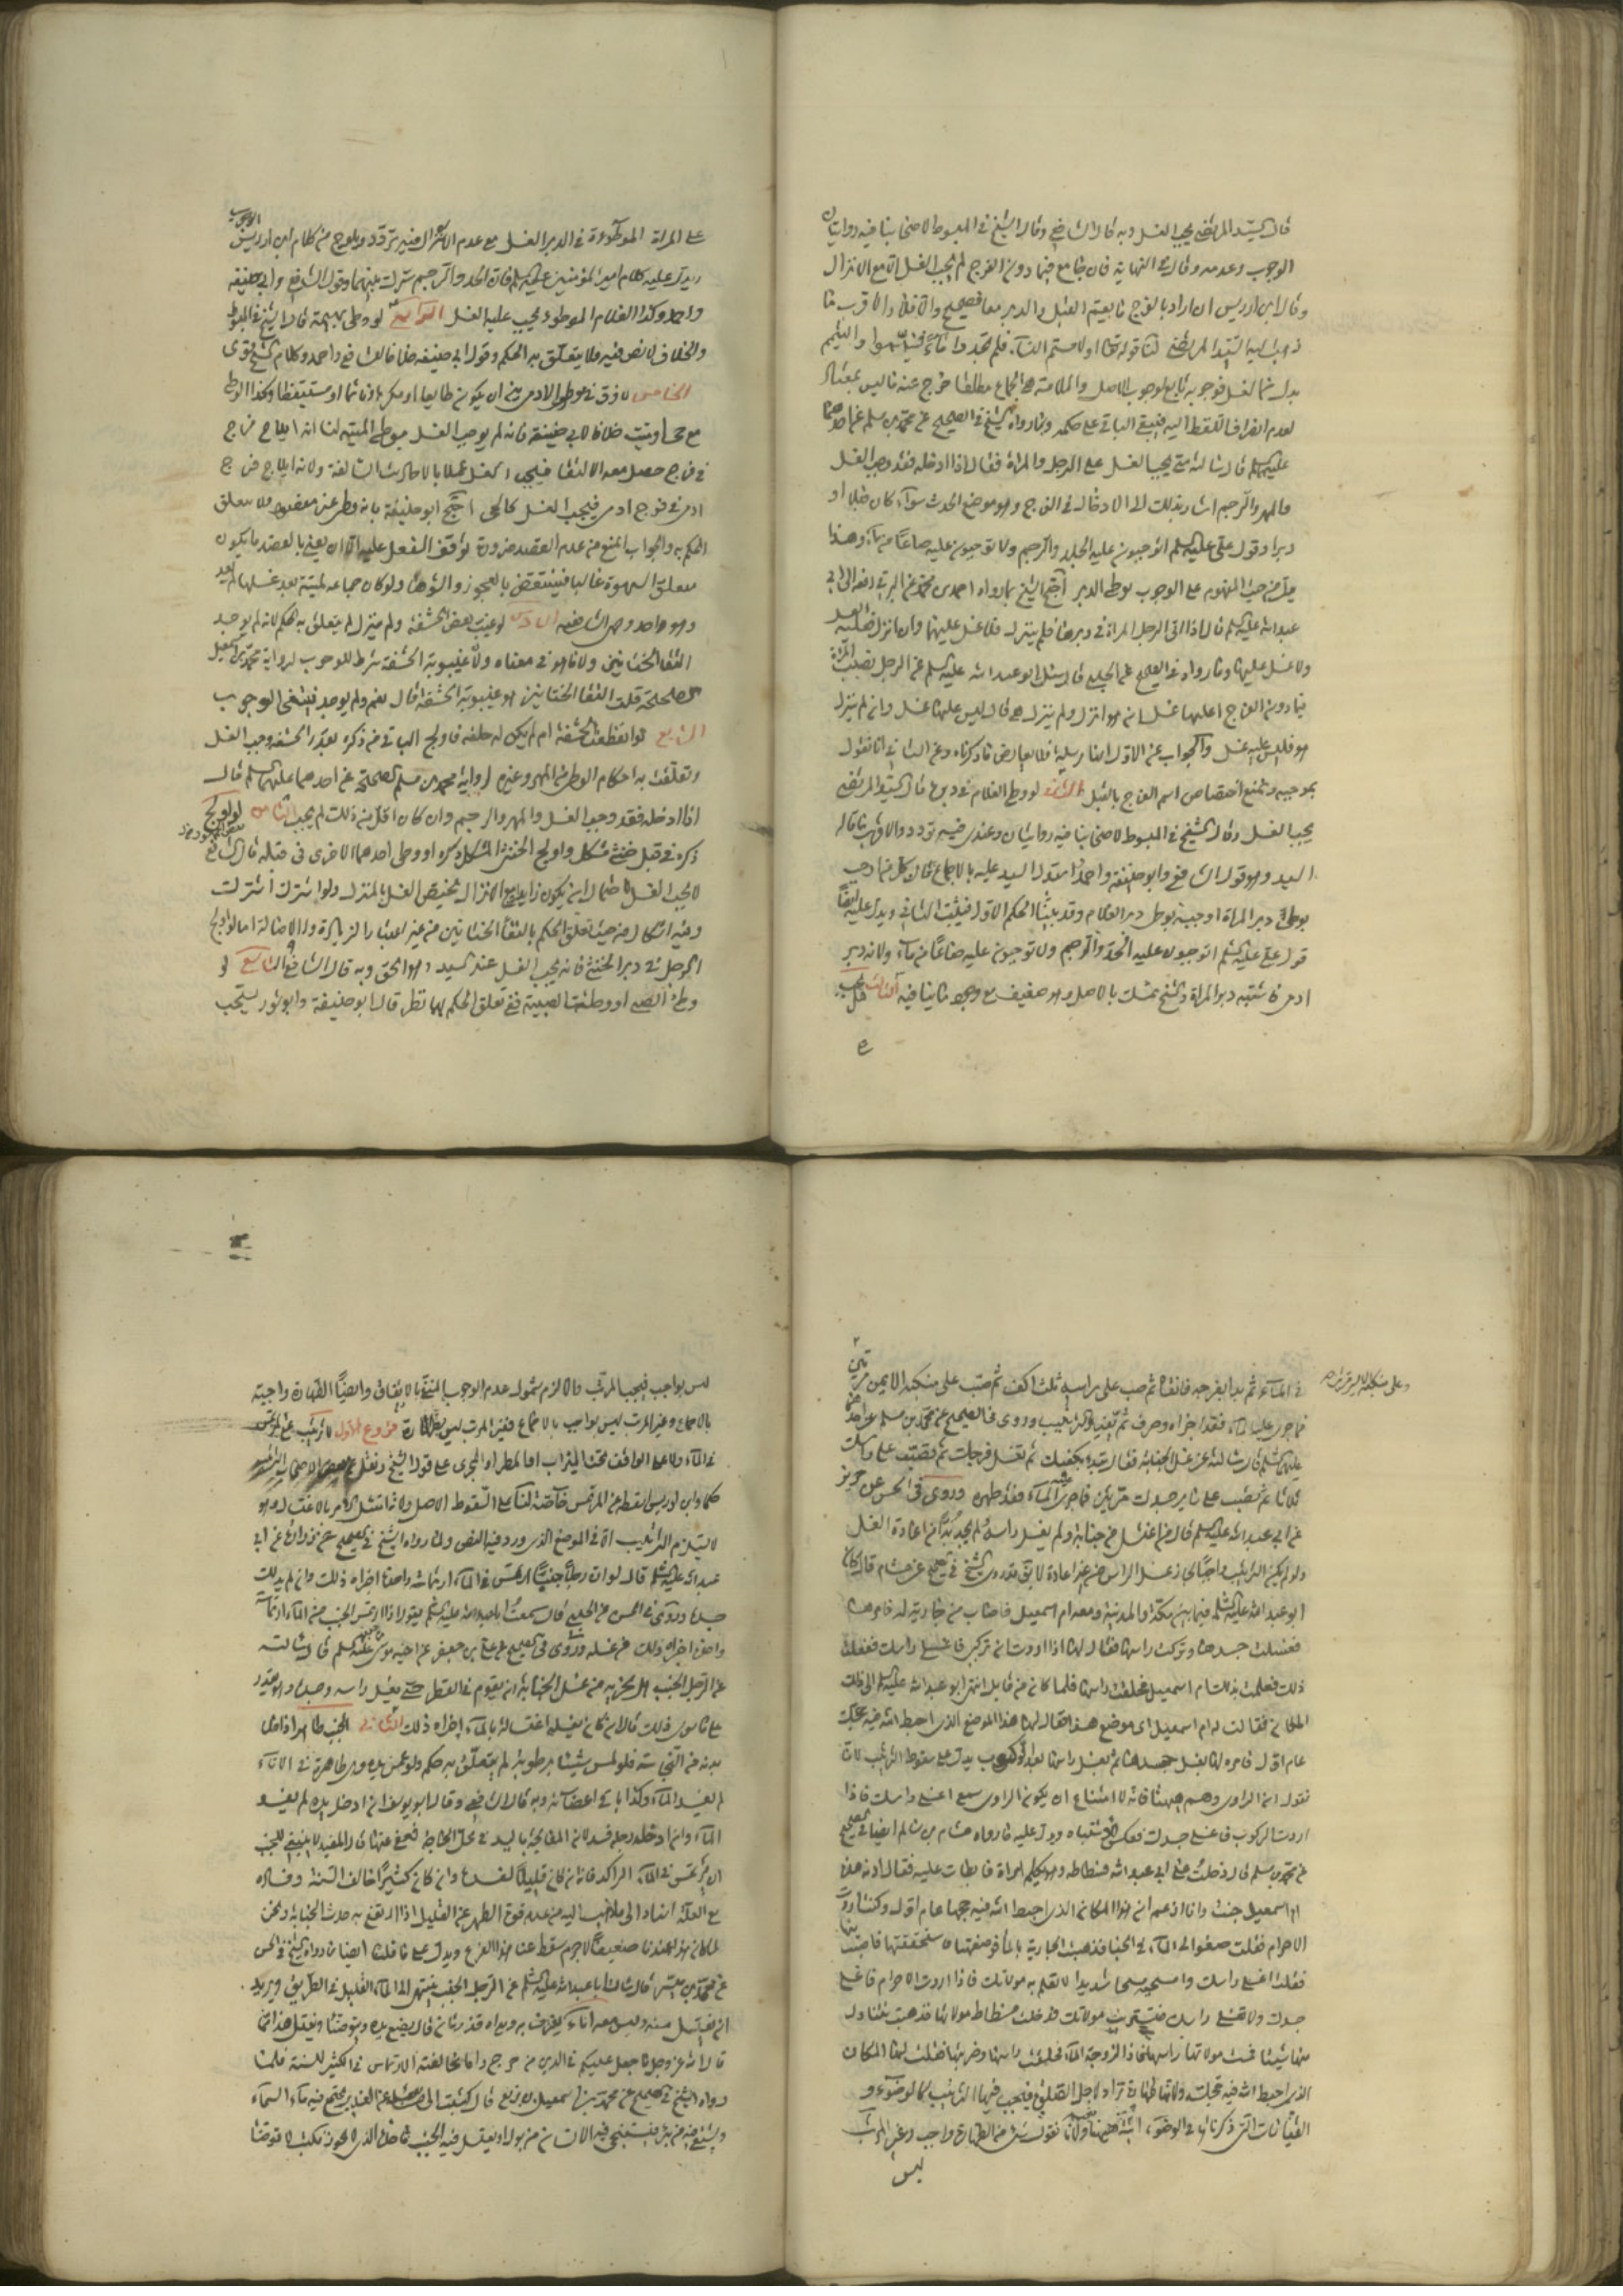 قال السيد المرتضى يجب الغسل وبه قال الشافعي وقال الشيخ في المبسوط لاصحابنا فيه روايتان
الوجوب وعدمه وقال في النهاية فان جامع فيما دون الفرج لم يجب الغسل الا مع الانزال
وقال ابن ادريس ان اراد بالفرج ما يعم القبل والدبر معا فصحيح والا فلا والاقرب ما
ذهب اليه السيد المرتضى لنا قوله تعالى او لامستم النساء فلم تجدوا ماء فتيمموا والتيمم
بدل من الغسل فوجوبه تابع لوجوب الاصل والملامسة الجماع مطلقا خرج عنه ما ليس بمعتاد
لعدم انصراف اللفظ اليه فيبقى الباقي على حكمه وما رواه الشيخ في الصحيح عن محمد بن مسلم عن احدهما
عليهما السلام قال سالته متى يجب الغسل على الرجل والمراة فقال اذا ادخله فقد وجب الغسل
والمهر والرجم اشار بذلك الى الادخال في الفرج وهو موضع الحدث سواء كان قبلا او
دبرا وقول علي عليه السلم اتوجبون عليه الجلد والرجم ولا توجبون عليه صاعا من ماء وهذا
يدل من حيث المفهوم على الوجوب بوطي الدبر احتج الشيخ بما رواه احمد بن محمد عن البرقي رفعه الى ابي
عبد الله عليه السلم قال اذا اتى الرجل المراة في دبرها فلم ينزل فلا غسل عليهما وان انزل فعليه الغسل
ولا غسل عليها وما رواه في الصحيح عن الحلبي قال سئل ابو عبد الله عليه السلم عن الرجل يصيب المراة
فيما دون الفرج اعليها غسل ان هو انزل ولم تنزل هي قال ليس عليها غسل وان لم ينزل
هو فليس عليه غسل والجواب عن الاول انها مرسلة فلا يعارض ما ذكرناه وعن الثاني انا نقول
بموجبه ونمنع اختصاص اسم الفرج بالقبل الثاني لو وطي الغلام في دبره قال السيد المرتضى
يجب الغسل وقال الشيخ في المبسوط لاصحابنا فيه روايتان وعندي فيه تردد والاقرب ما قاله
السيد وهو قول الشافعي وابو حنيفة واحمد استدل السيد عليه بالاجماع فان كل من اوجب
بوطي دبر المراة اوجبه بوطي دبر الغلام وقد بينا الحكم الاول فيثبت الثاني ويدل عليه ايضا
قول علي عليه السلم اتوجبون عليه الحد والرجم ولا توجبون عليه صاعا من ماء ولانه دبر
ادمي فاشبه دبر المراة والشيخ تمسك بالاصل وهو ضعيف مع وجود ما ينافيه الثالث هل يجب
على المراة الموطوءة في الدبر الغسل مع عدم الانزال فيه تردد ويلوح من كلام ابن ادريس الوجوب
ويدل عليه كلام امير المؤمنين عليه السلم فان الحد والرجم مشترك بينهما وقول الشافعي وابي حنيفة
واحمد وكذا الغلام الموطوء يجب عليه الغسل الرابع لو وطي بهيمة قال الشيخ في المبسوط
والخلاف لا نص فيه فلا يتعلق به الحكم وقول ابي حنيفة خلافا للشافعي واحمد وكلام الشيخ قوي
الخامس لا فرق في وطي الادمي بين ان يكون طايعا او مكرها او نائما او مستيقظا وكذا الوطي
مع حي او ميت خلافا لابي حنيفة فانه لم يوجب الغسل بوطي الميتة لنا انه ايلاج فرج
في فرج حصل معه الالتقا فيجب الغسل عملا بالاحاديث السالفة ولانه ايلاج في فرج
ادمي في فرج ادمي فيجب الغسل كالحي احتج ابو حنيفة بانه وطي غير مقصود فلا يتعلق
الحكم به والجواب المنع من عدم القصد ضرورة توقف الفعل عليه الا ان يعني بالقصد ما يكون
متعلق الشهوة غالبا فينتقض بالعجوز والشوهاء ولو كان جماعه لميتة بعد غسلها لم يعد
وهو واحد وجهي الشافعية السادس لو غيب بعض الحشفة ولم ينزل لم يتعلق به حكم لانه لم يوجد
التقا الختانين ولا ما هو في معناه ولان غيبوبة الحشفة شرط للوجوب لرواية محمد بن اسمعيل
الصحيحة قلت التقا الختانين هو غيبوبة الحشفة قال نعم ولم يوجد فينتفي الوجوب
السابع لو انقطعت الحشفة او لم يكن له خلقة فاولج الباقي من ذكره بقدر الحشفة وجب الغسل
وتعلقت به احكام الوطي من المهر وغيره لرواية محمد بن مسلم الصحيحة عن احدهما عليهما السلم قال
اذا ادخله فقد وجب الغسل والمهر والرجم وان كان اقل من ذلك لم يجب الثامن لو اولج
ذكره في قبل خنثى مشكل او اولج الخنثى المشكل ذكره او وطي احدهما الاخرى في قبله قال الشافعي
لا يجب الغسل لاحتمال ان يكون زايدا ومع الانزال يختص الغسل بالمنزل ولو اشترك اشتركت
وفيه اشكال من حيث تعلق الحكم بالتقا الختانين من غير اعتبار الزيادة والاصالة اما لو اولج
الرجل في دبر الخنثى فانه يجب الغسل عند السيد وهو الحق وبه قال الشافعي التاسع لو
وطئ الصبي او وطئت الصبية ففي تعلق الحكم بهما نظر قال ابو حنيفة وابو ثور يستحب
في الماء ثم بدا بفرجه فانقاه ثم صب على راسه ثلث اكف ثم صب على منكبه الايمن مرتين
وعلى منكبه الايسر مرتين
فما جرى عليه الماء فقد اجزاه وحرف ثم يفيد الترتيب وروى في الصحيح عن محمد بن مسلم عن احدهما
عليهما السلم قال سالته عن غسل الجنابة فقال تبدا بكفيك ثم تغسل فرجك ثم تصب على راسك
ثلاثا ثم تصب على ساير جسدك مرتين فما جرى عليه الماء فقد طهر وروى في الحسن عن حريز
عن ابي عبد الله عليه السلم قال من اغتسل من جنابة ولم يغسل راسه لم يجد بدا من اعادة الغسل
ولو لم يكن الترتيب واجبا لجاز غسل الراس من غير اعادة لا يق قد روى الشيخ في الصحيح عن هشام قال كان
ابو عبد الله عليه السلم فيما بين مكة والمدينة ومعه ام اسمعيل فاصاب من جارية له فامرها
فغسلت جسدها وتركت راسها فقال لها اذا اردت ان تركبي فاغسلي راسك ففعلت
ذلك فعلمت بذلك ام اسمعيل فحلقت راسها فلما كان من قابل انتهى ابو عبد الله عليه السلم الى ذلك
المكان فقالت له ام اسمعيل اى موضع هذا فقال لها هذا الموضع الذي احبط الله فيه حجك
عام اول فامره لها بغسل جسدها ثم بغسل راسها بعد الركوب يدل على سقوط الترتيب لانا
نقول ان الراوي وهم ههنا فانه لا امتناع ان يكون الراوي سمع اغسلي راسك فاذا
اردت الركوب فاغسلي جسدك فعكس لاشتباه ويدل عليه ما رواه هشام بن سالم ايضا في الصحيح
عن محمد بن مسلم قال دخلت على ابي عبد الله فسطاطه وهو يكلم امراة فابطات عليه فقال ادنه هذه
ام اسمعيل جئت وانا ازعم ان هذا المكان الذي احبط الله فيه حجها عام اول وكنت اردت
الاحرام فقلت ضعوا لي الماء في الخبا فذهبت الجارية بالماء فوضعته فاستخففتها فاصبت منها
فقلت اغسلي راسك وامسحيه مسحا شديدا لا تعلم به مولاتك فاذا اردت الاحرام فاغسلي
جسدك ولا تغسلي راسك فتستريب مولاتك فدخلت فسطاط مولاتها فذهبت تتناول
منها شيئا فمست مولاتها راسها فاذا لزوجة الماء فحلقت راسها وضربتها فقلت لها هذا المكان
الذي احبط الله فيه حجك ولانها طهارة تراد لاجل الصلوة فيجب فيها الترتيب كالوضوء و
القياسات التي ذكرناها في الوضوء اتية ههنا ولانا نقول شئ من الطهارة واجب وغير المرتب
ليس
ليس بواجب فيجب المرتب والا لزم شمول عدم الوجوب المنتفي بالاتفاق وايضا الطهارة واجبة
بالاجماع وغير المرتب ليس بواجب بالاجماع فغير المرتب ليس بطهارة فروع الاول لا ترتيب على المرتمس
في الماء ولا على الواقف تحت الميزاب او المطر او المجرى على قول الشيخ ونقل عن بعض الاصحاب الترتيب
حكما وابن ادريس اسقطه عن المرتمس خاصة لنا على السقوط الاصل ولانه امتثل الامر بالاغتسال وهو
لا يستلزم الترتيب الا في الموضع الذي ورد فيه النص وما رواه الشيخ في الصحيح عن زرارة عن ابي
عبد الله عليه السلم قال لو ان رجلا جنبا ارتمس في الماء ارتماسة واحدة اجزاه ذلك وان لم يدلك
جسده وروى في الحسن عن الحلبي قال سمعت ابا عبد الله عليه السلم يقول اذا ارتمس الجنب في الماء ارتماسة
واحدة اجزاه ذلك من غسله وروى في الصحيح عن علي بن جعفر عن اخيه موسى عليه السلم قال سالته
عن الرجل الجنب هل يجزيه من غسل الجنابة ان يقوم في القطر حتى يغسل راسه وجسده وهو يقدر
على ما سوى ذلك قال ان كان يغسله اغتساله بالماء اجزاه ذلك الثاني الجنب طاهر اذا خلى
بدنه من النجاسة فلو لمس شيئا برطوبة لم يتعلق به حكم ولو غمس يده وهي طاهرة في الاناء
لم يفسد الماء وكذا باقي اعضائه وبه قال الشافعي وقال ابو يوسف ان ادخل يده لم يفسد
الماء وان ادخل رجله فسد لان المغايرة باليد في محل الحاجة فعفي عنها قال المفيد لا ينبغي للجنب
ان يرتمس في الماء الراكد فانه ان كان قليلا افسده وان كان كثيرا خالف السنة وفساده
مع القلة اشارة الى مذهب اليه من عدم قوة الطهر عن القليل اذا ارتفع به حدث الجنابة ونحن
لما كان هذا عندنا ضعيفا لا جرم سقط عنا هذا الفرع ويدل على ما قلنا ايضا ما رواه الشيخ في الحسن
عن محمد بن ميسر قال سالت ابا عبد الله عليه السلم عن الرجل الجنب ينتهي الى الماء القليل في الطريق ويريد
ان يغتسل منه وليس معه اناء يغرف به ويداه قذرتان قال يضع يده ويتوضا ويغتسل هذا مما
قال الله عز وجل ما جعل عليكم في الدين من حرج واما مخالفته الارتماس في الكثير للسنة فلما
رواه الشيخ في الصحيح عن محمد بن اسمعيل بن بزيع قال كتبت الى من يسئله عن الغدير يجتمع فيه ماء السماء
ويستقى فيه من بئر فيستنجي فيه الانسان من بول او يغتسل فيه الجنب ما حده الذي لا يجوز فكتب لا توضا